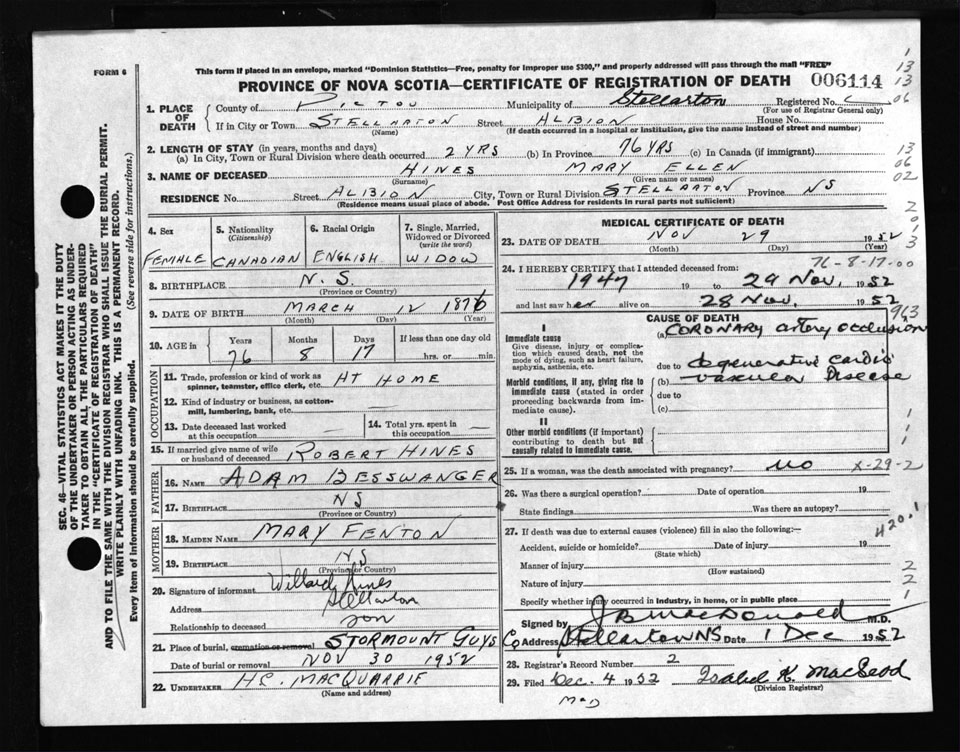 FORM 6
This form if placed in an envelope, marked "Dominion Statistics—Free, penalty for improper use $300," and properly addressed will pass through the mail "FREE"
PROVINCE OF NOVA SCOTIA—CERTIFICATE OF REGISTRATION OF DEATH 006114
1. PLACE OF DEATH
County of PICTOU Municipality of Stellarton Registered No.
(For use of Registrar General only)
If in City or Town STELLARTON Street ALBION House No.
(Name) (If death occurred in a hospital or institution, give the name instead of street and number)
2. LENGTH OF STAY (in years, months and days)
(a) In City, Town or Rural Division where death occurred 2 YRS (b) In Province 76 YRS (c) In Canada (if immigrant)
3. NAME OF DECEASED HINES MARY ELLEN
(Surname) (Given name or names)
RESIDENCE No. Street ALBION City, Town or Rural Division STELLARTON Province NS
(Residence means usual place of abode. Post Office Address for residents in rural parts not sufficient)
4. Sex FEMALE
5. Nationality (Citizenship) CANADIAN
6. Racial Origin ENGLISH
7. Single, Married, Widowed or Divorced (write the word) WIDOW
8. BIRTHPLACE N.S.
(Province or Country)
9. DATE OF BIRTH MARCH 12 1876
(Month) (Day) (Year)
10. AGE in Years Months Days If less than one day old
76 8 17 hrs. or min.
OCCUPATION
11. Trade, profession or kind of work as spinner, teamster, office clerk, etc. AT HOME
12. Kind of industry or business, as cotton-mill, lumbering, bank, etc.
13. Date deceased last worked at this occupation —
14. Total yrs. spent in this occupation —
15. If married give name of wife or husband of deceased ROBERT HINES
FATHER
16. NAME ADAM BESSWANGER
17. BIRTHPLACE NS
(Province or Country)
MOTHER
18. MAIDEN NAME MARY FENTON
19. BIRTHPLACE NS
(Province or Country)
20. Signature of informant Willard Hines
Address Stellarton
Relationship to deceased son
21. Place of burial, cremation or removal STORMOUNT GUYS Co
Date of burial or removal NOV 30 1952
22. UNDERTAKER HC. MACQUARRIE
(Name and address)
MEDICAL CERTIFICATE OF DEATH
23. DATE OF DEATH NOV 29 1952
(Month) (Day) (Year)
76-8-17-00
24. I HEREBY CERTIFY that I attended deceased from:
1947 19 to 29 Nov, 1952
and last saw her alive on 28 Nov, 1952
CAUSE OF DEATH
I
Immediate cause
Give disease, injury or complication which caused death, not the mode of dying, such as heart failure, asphyxia, asthenia, etc.
(a) CORONARY artery occlusion
due to degenerative cardio
Morbid conditions, if any, giving rise to immediate cause (stated in order proceeding backwards from immediate cause).
(b) vascular Disease
due to
(c)
II
Other morbid conditions (if important) contributing to death but not causally related to immediate cause.
25. If a woman, was the death associated with pregnancy? no X-29-2
26. Was there a surgical operation? Date of operation 19
State findings Was there an autopsy?
27. If death was due to external causes (violence) fill in also the following:—
420.1
Accident, suicide or homicide? Date of injury 19
(State which)
Manner of injury
(How sustained)
Nature of injury
Specify whether injury occurred in industry, in home, or in public place
Signed by J B MacDonald M.D.
Address Stellarton NS Date 1 Dec 1952
28. Registrar's Record Number 2
29. Filed Dec. 4 1952 Isabel K. MacLeod
(Division Registrar)
SEC. 46—VITAL STATISTICS ACT MAKES IT THE DUTY
OF THE UNDERTAKER OR PERSON ACTING AS UNDERTAKER TO OBTAIN ALL THE PARTICULARS REQUIRED
IN THE "CERTIFICATE OF REGISTRATION OF DEATH"
AND TO FILE THE SAME WITH THE DIVISION REGISTRAR WHO SHALL ISSUE THE BURIAL PERMIT.
WRITE PLAINLY WITH UNFADING INK. THIS IS A PERMANENT RECORD.
Every item of Information should be carefully supplied. (See reverse side for instructions.)
13
13
06
13
06
02
2
0
1
3
963
1
1
1
2
2
1